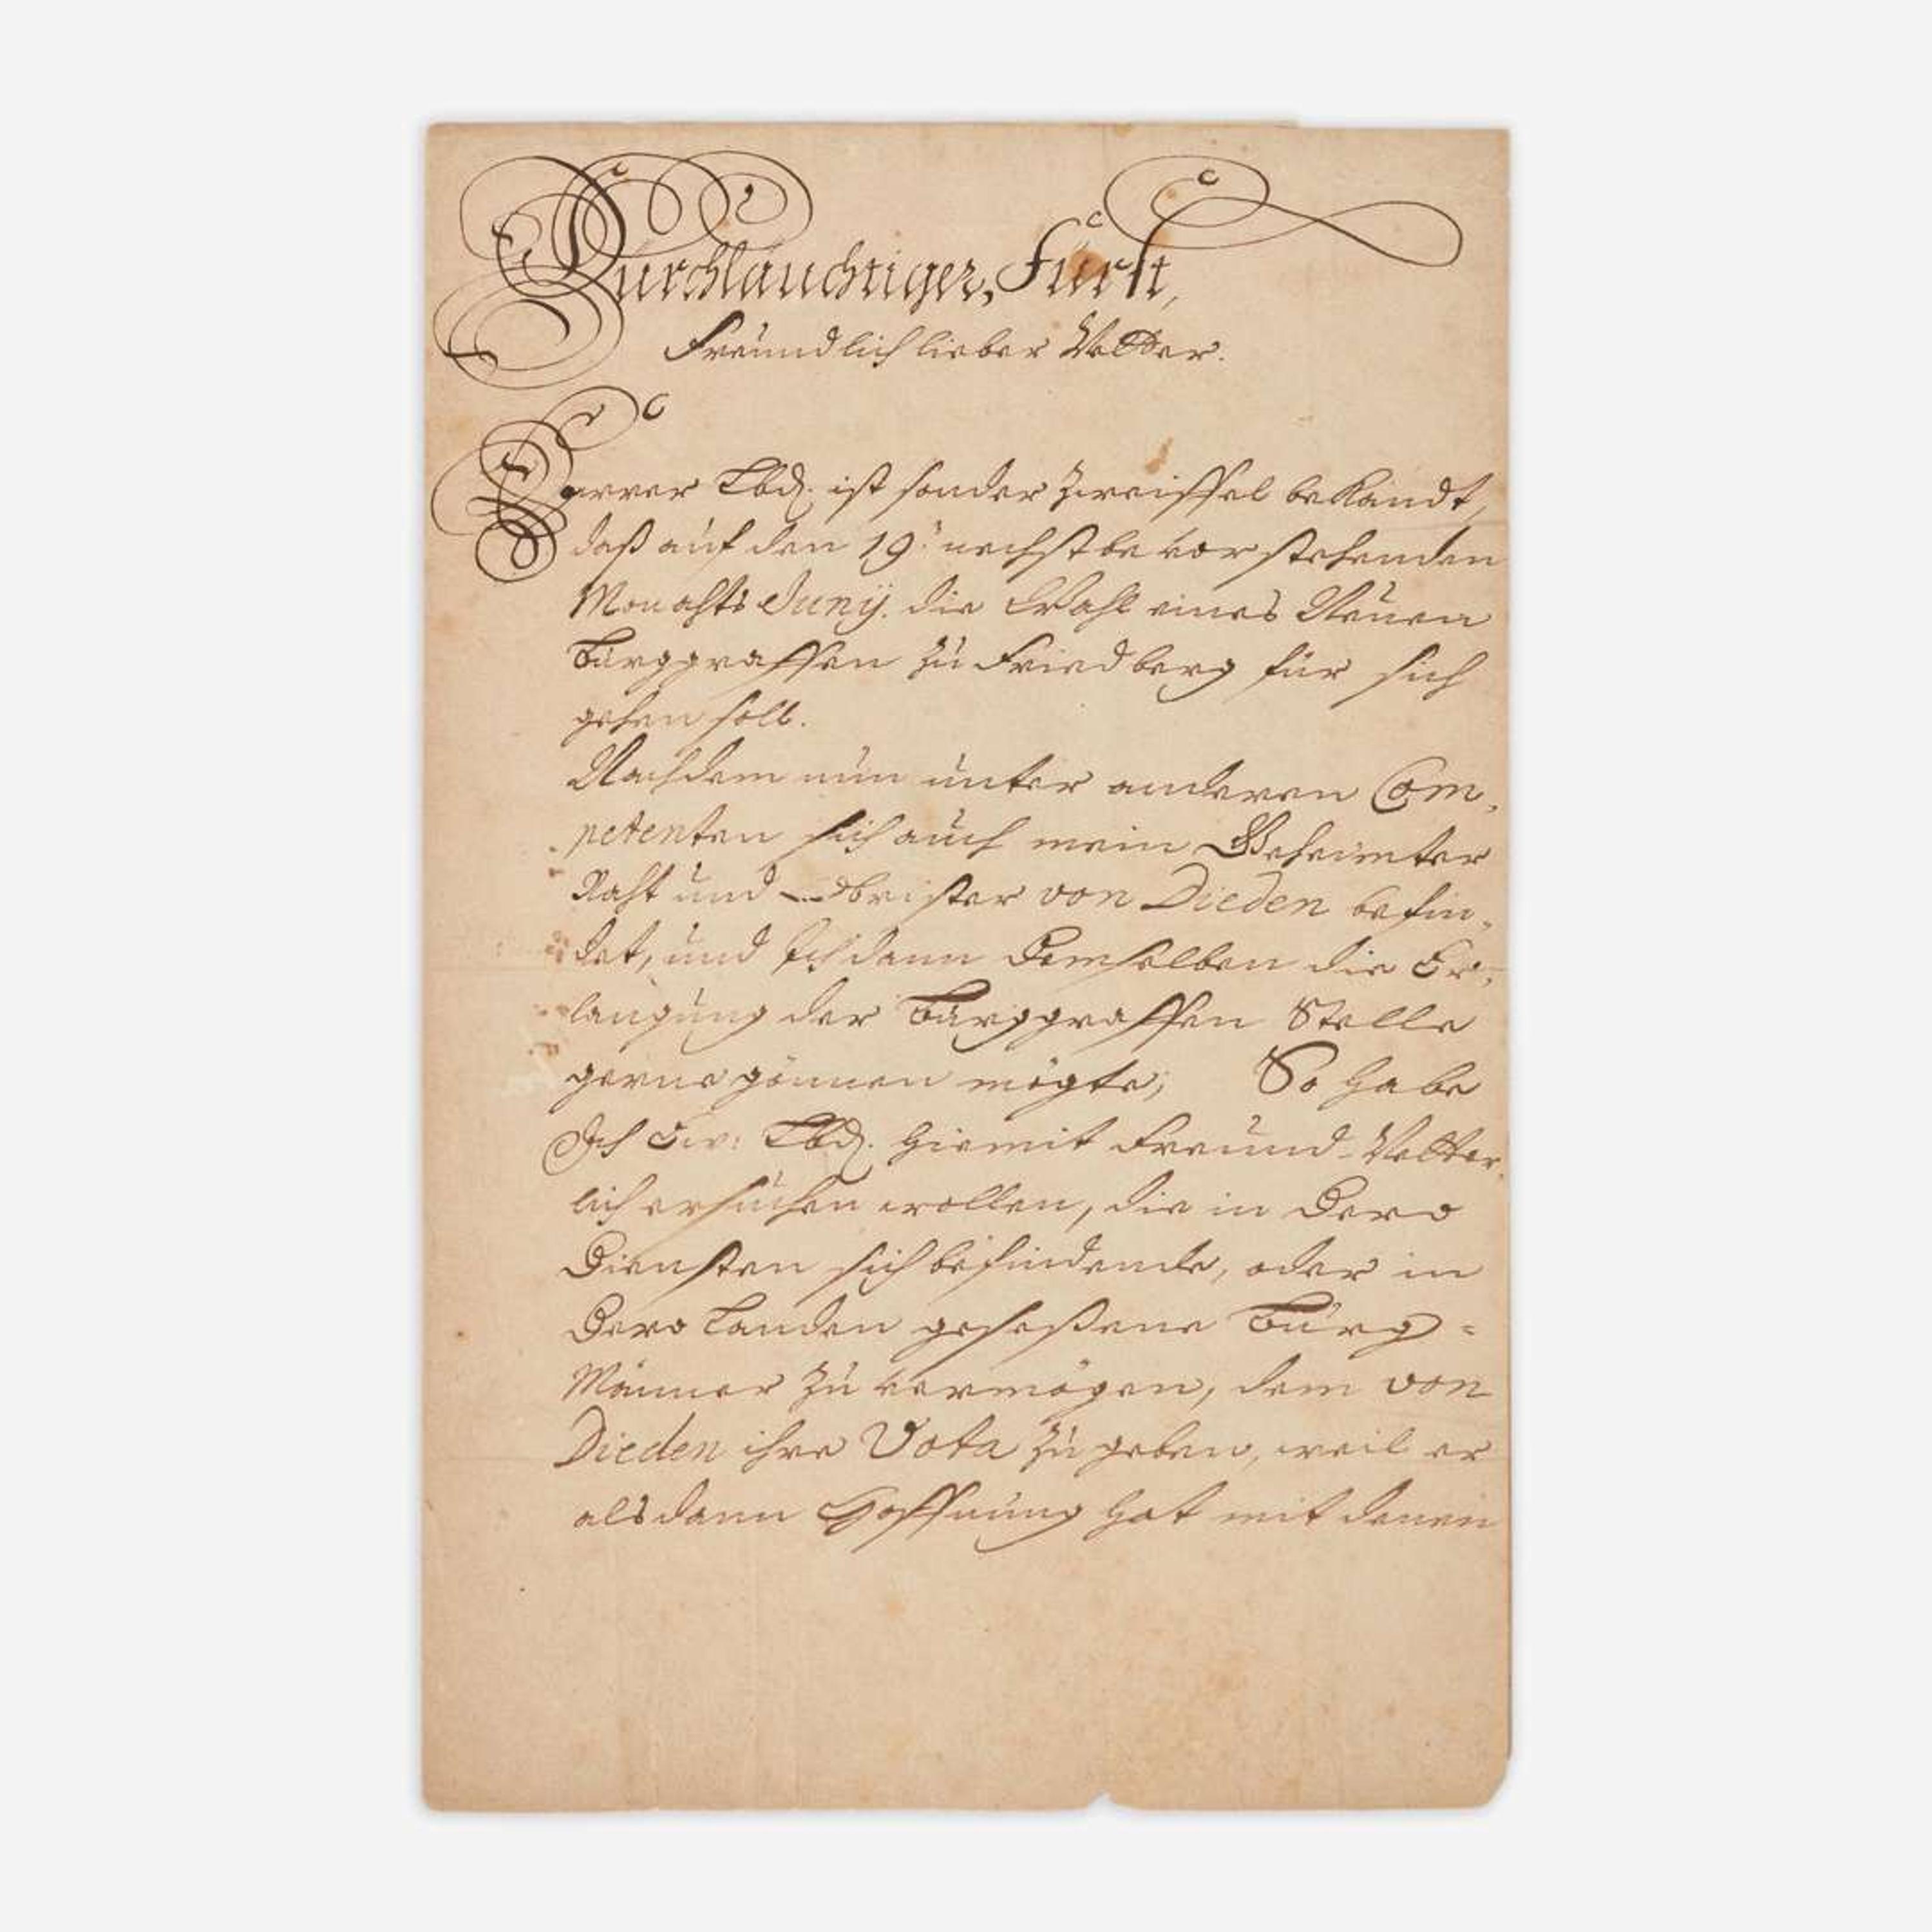 Durchläuchtiger, Fürst,
Freündlich lieber Vetter.
Eurer Lbd. ist sonder Zweiffel bekandt,
daß auf den 19. nechstbevorstehenden
Monahts Juny. die Wahl eines Neüen
Burggraffen zu Friedberg für sich
gehen soll.
Nachdem nun unter anderen Com,
petenten sich auch mein Geheimter
Raht und Obrister von Dieden befin,
det, und Ich dann Demselben die Er,
langung der Burggraffen Stelle
gerne gönnen mögte; So habe
Ich Ew: Lbd. hiemit Freund-Vetter,
lich ersuchen wollen, die in Dero
Diensten sich befindende, oder in
Dero Landen geseßene Burg=
Männer zu vermögen, dem von
Dieden ihre Vota zu geben, weil er
alsdann Hoffnung hat mit denen